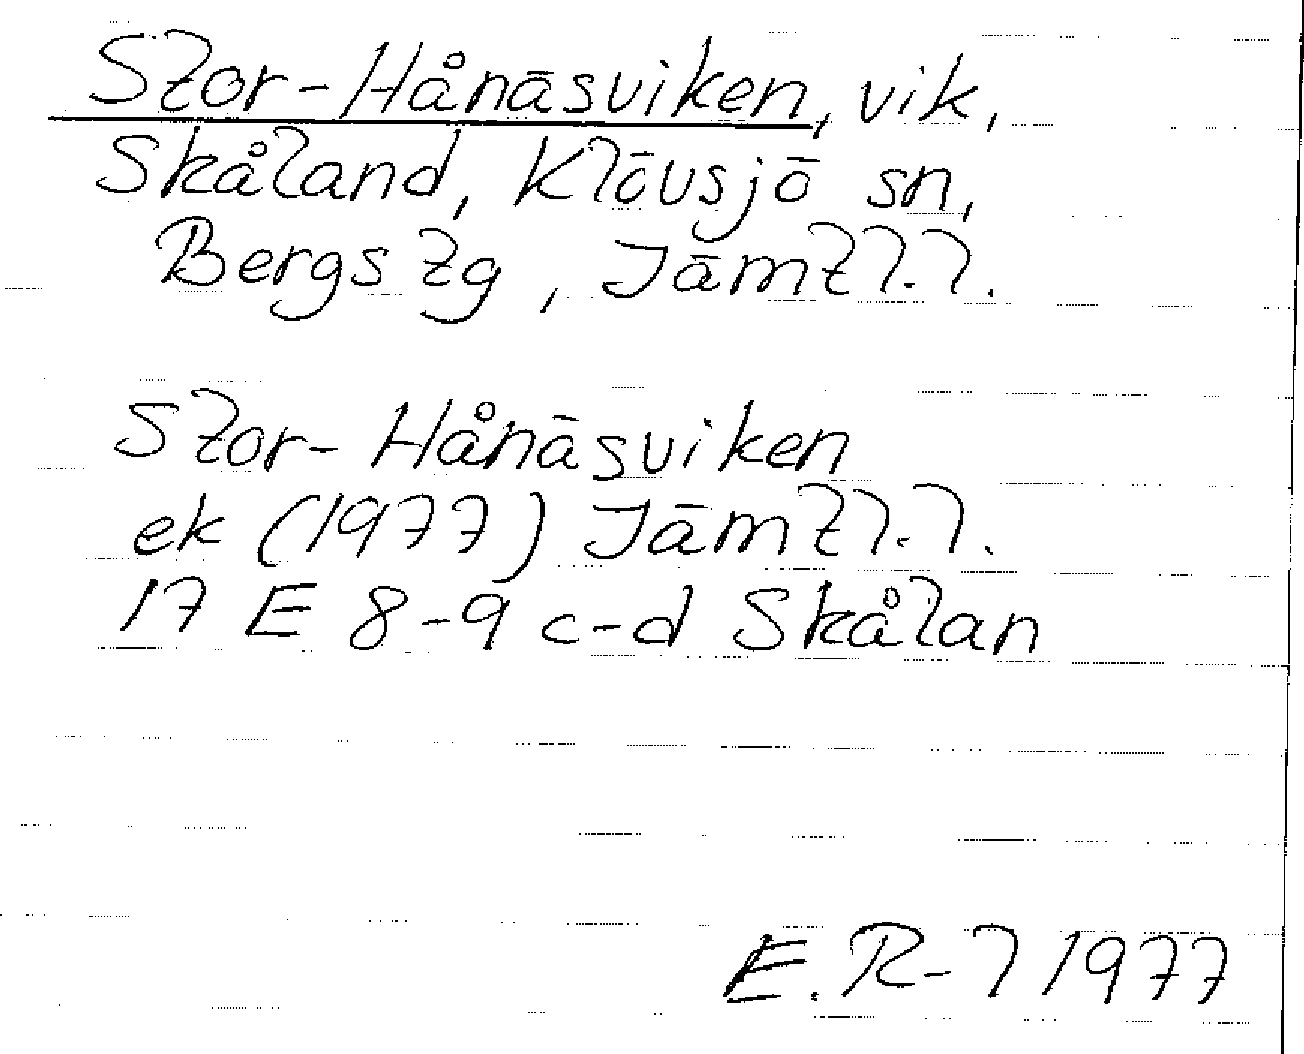 Stor-Hånäsviken, vik,
Skåland, Klövsjö sn,
Bergs tg, Jämtl.l.
Stor-Hånäsviken
ek (1977) Jämtl.l.
17 E 8-9 c-d Skålan
E. R-l 1977